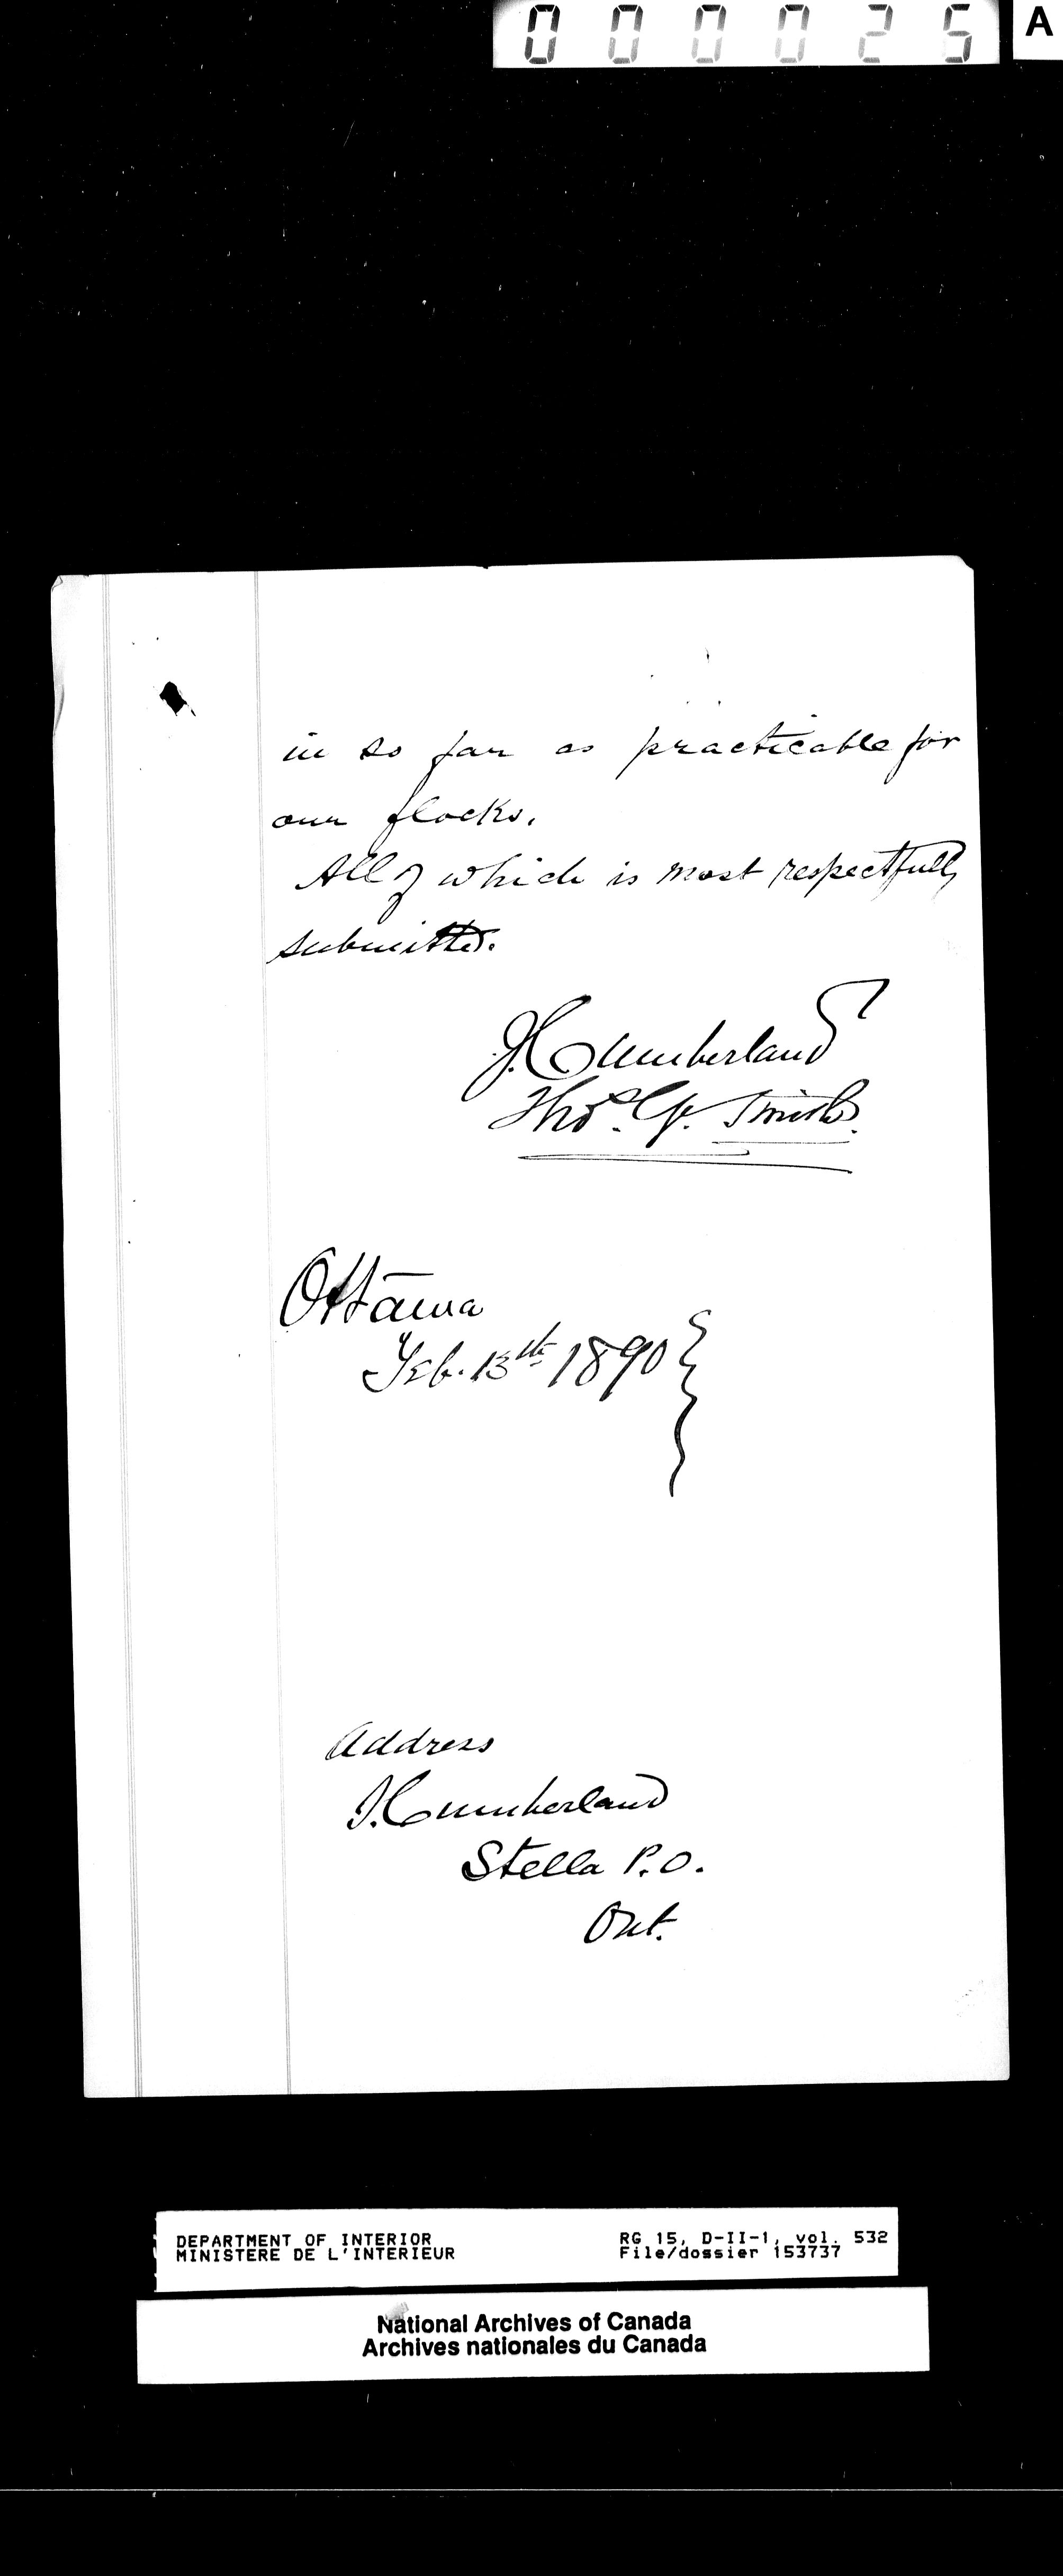 000025
A
in so far as practicable for
our flocks.
All of which is most respectfully
submitted.
J. Cumberland
Thos. G. Smith.
Ottawa
Feb. 13th 1890
Address
J. Cumberland
Stella P.O.
Ont.
DEPARTMENT OF INTERIOR
MINISTERE DE L'INTERIEUR
RG 15, D-II-1, vol. 532
File/dossier 153737
National Archives of Canada
Archives nationales du Canada